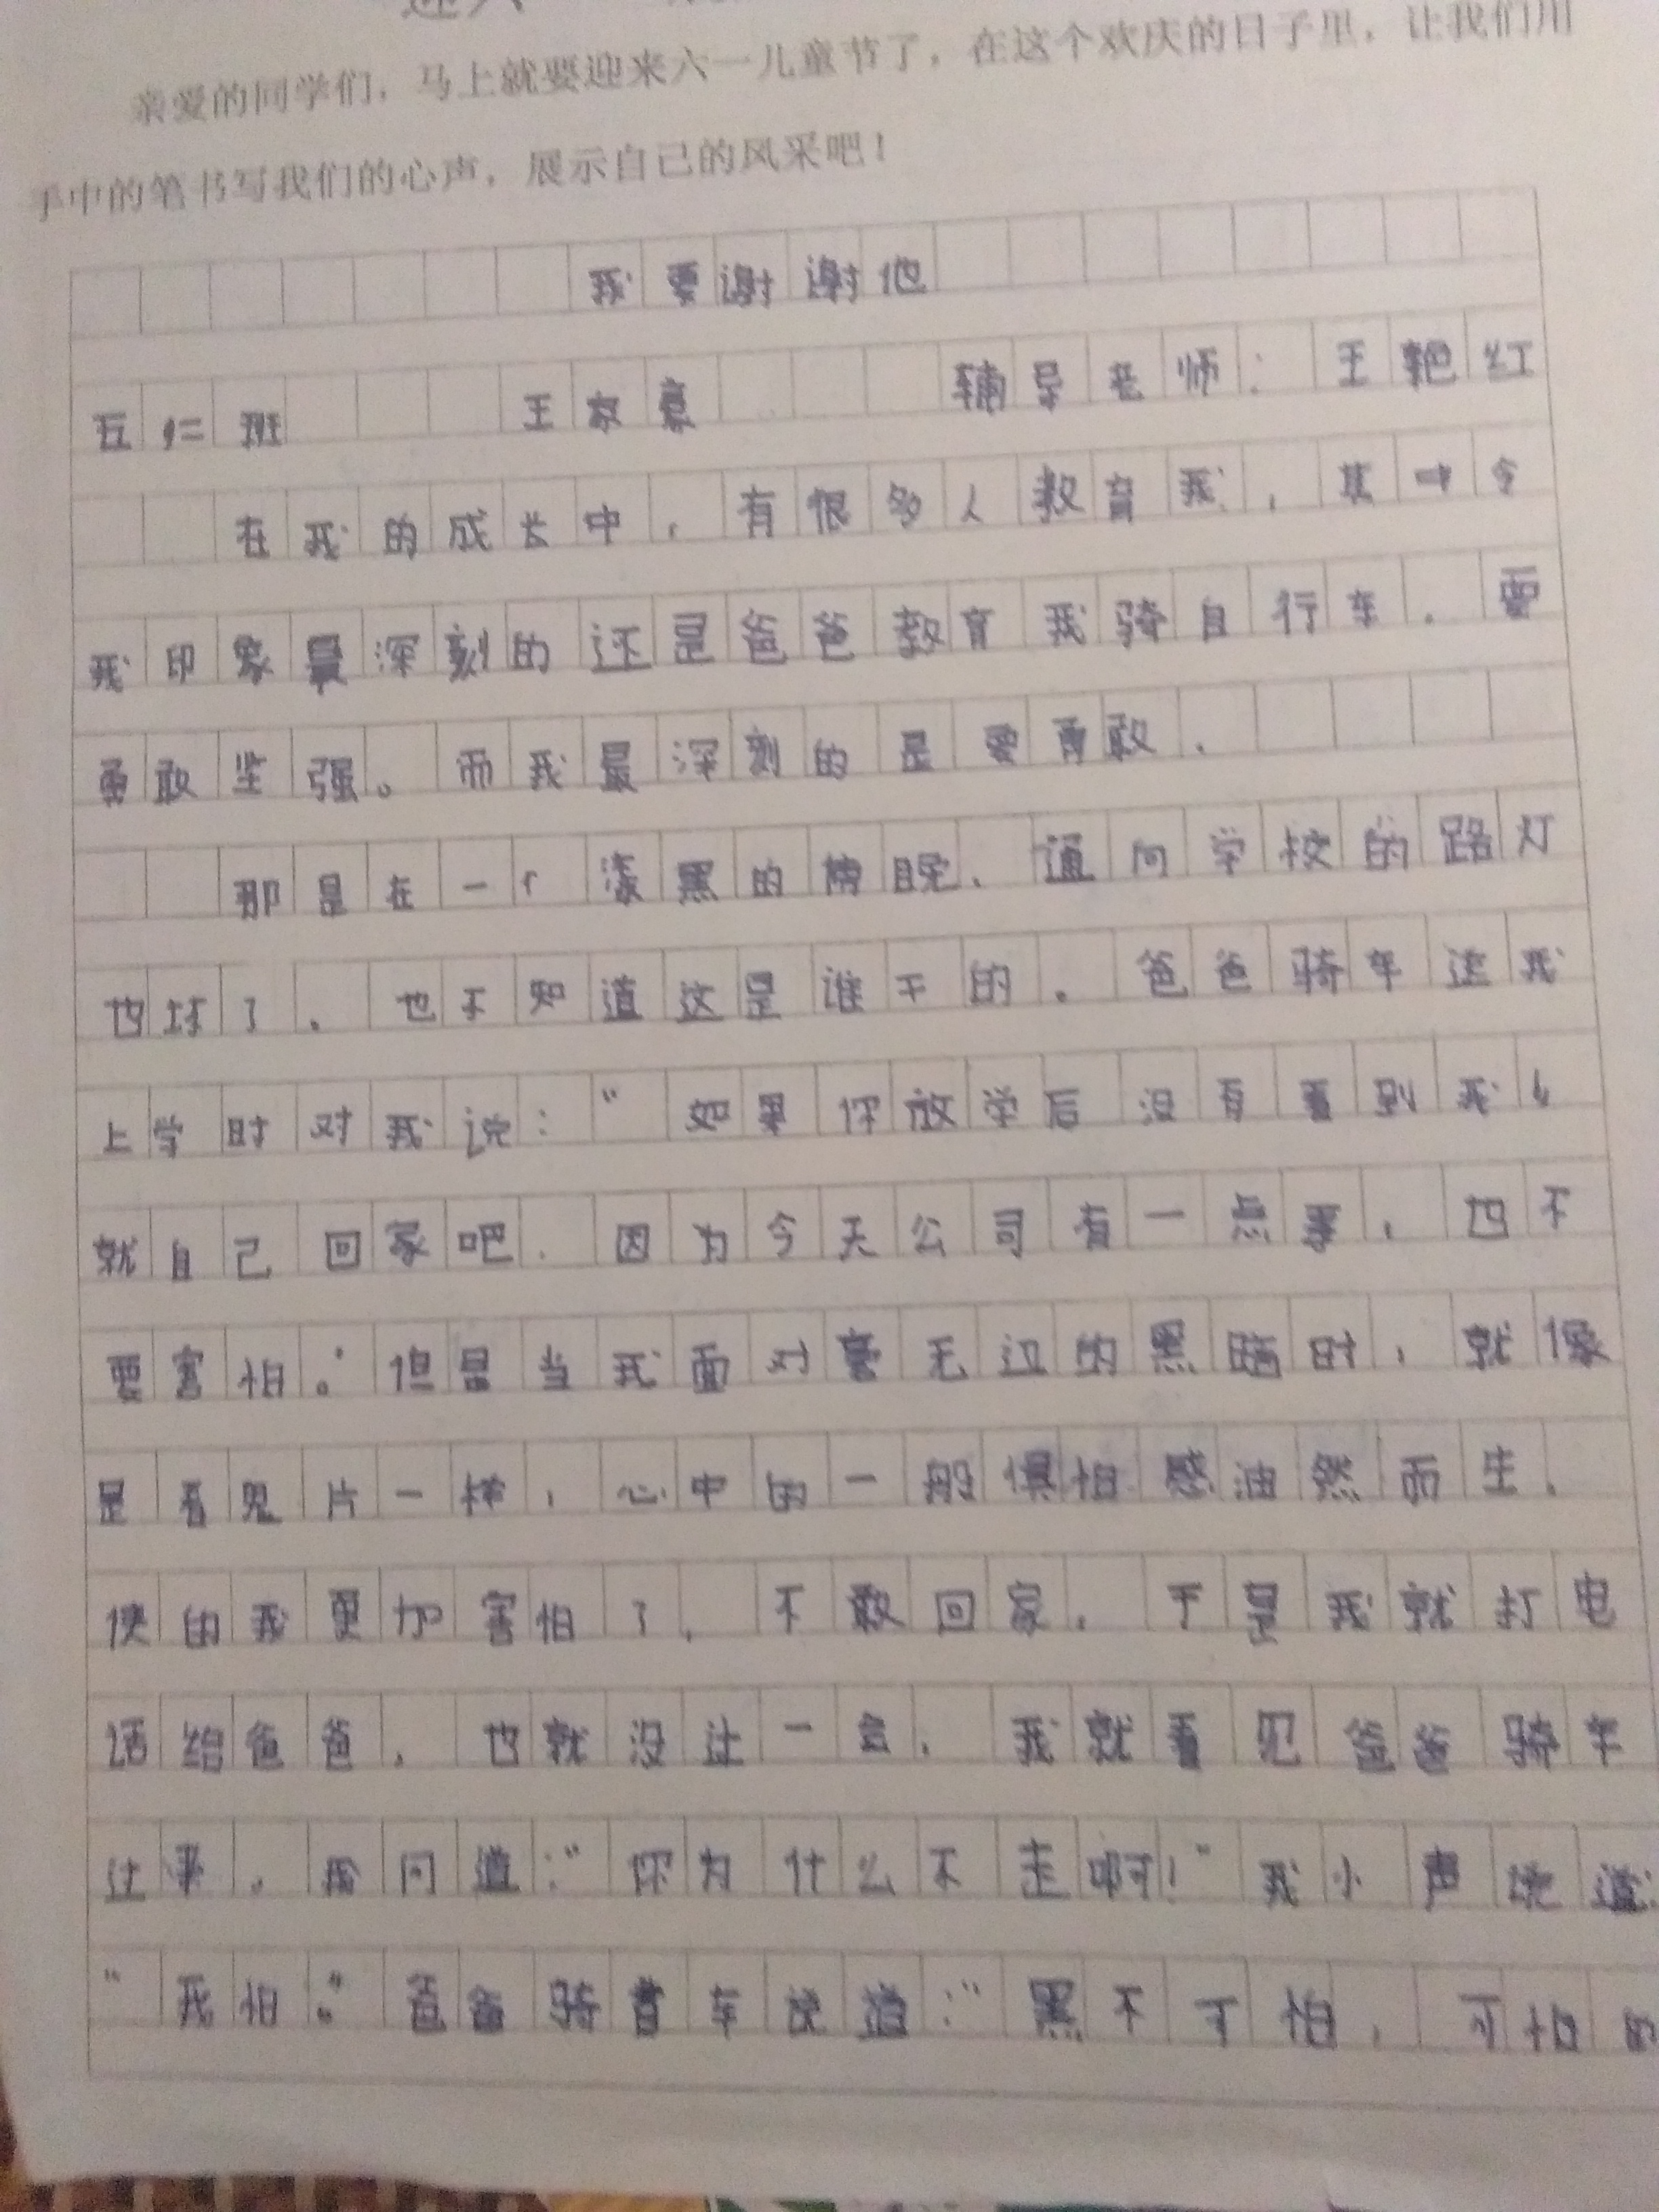 亲爱的同学们，马上就要迎来六一儿童节了，在这个欢庆的日子里，让我们用
手中的笔书写我们的心声，展示自己的风采吧！
我要谢谢他
五仁班 王家 辅导老师：王艳红
在我的成长中，有很多人教育我，其中令
我印象最深刻的还是爸爸教育我骑自行车，要
勇敢坚强。而我最深刻的是要勇敢。
那是在一个漆黑的傍晚，通向学校的路灯
也坏了。也不知道这是谁干的。爸爸骑车送我
上学时对我说：“如果你放学后没有看到我，
就自己回家吧，因为今天公司有一点事，也不
要害怕。”但是当我面对毫无边的黑暗时，就像
是看鬼片一样，心中的一般惧怕感油然而生。
使的我更加害怕了，不敢回家。于是我就打电
话给爸爸，也就没过一会，我就看见爸爸骑车
过来。问道：“你为什么不走啊！”我小声说道：
“我怕。”爸爸骑着车说道：“黑不可怕，可怕的